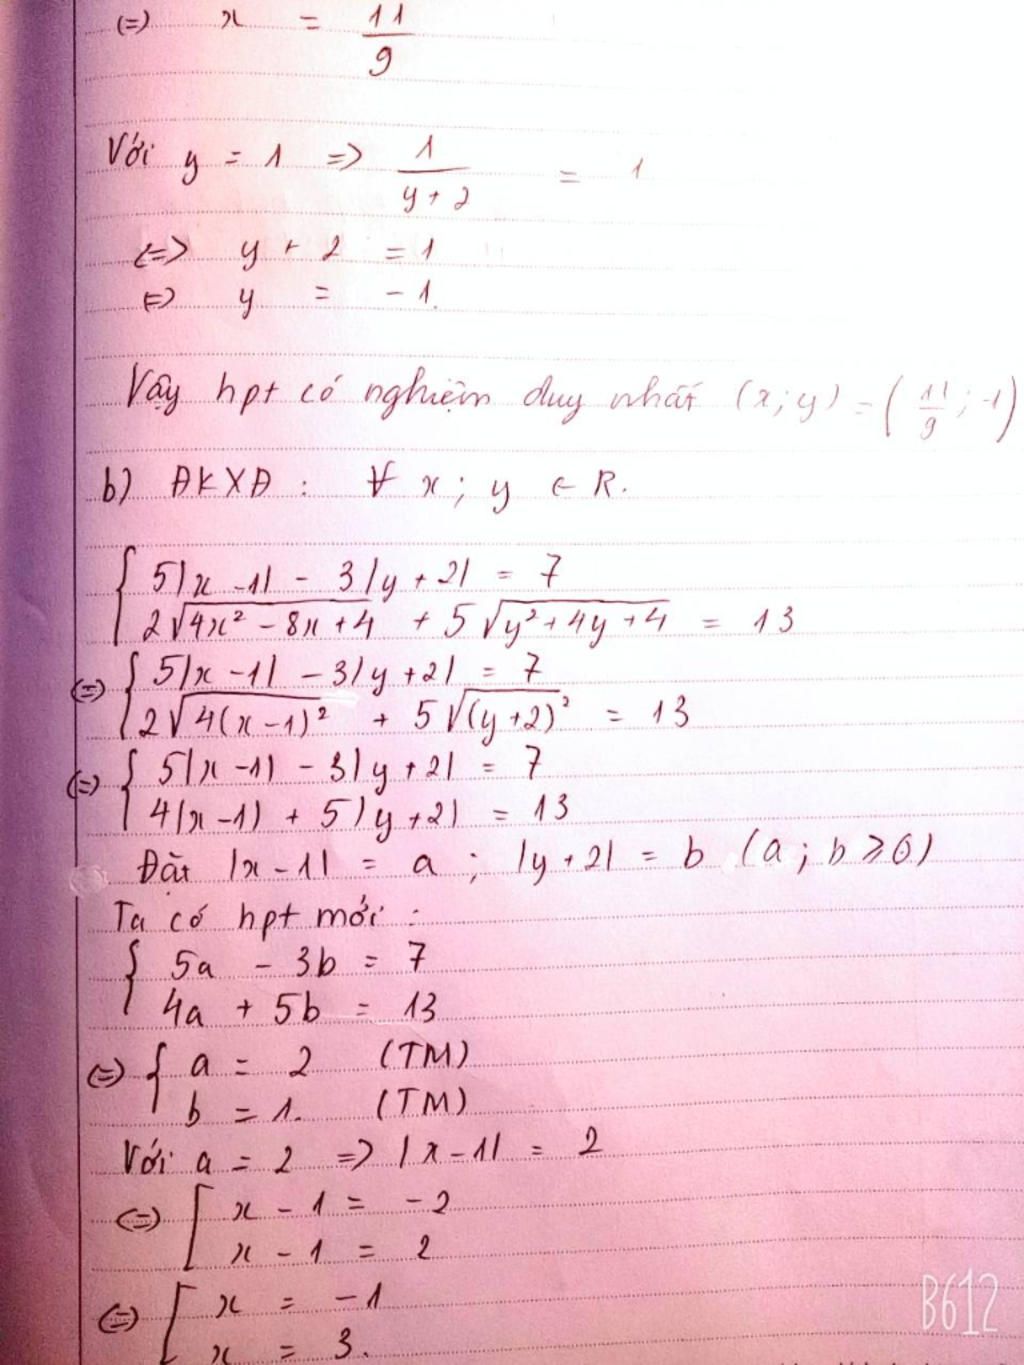 (=) x = 11/9
Với y = 1 => 1/(y + 2) = 1
<=> y + 2 = 1
<=> y = -1.
Vậy hpt có nghiệm duy nhất (x; y) = (11/9; -1)
b) ĐKXĐ : ∀ x ; y ∈ R.
{ 5|x - 1| - 3|y + 2| = 7
2√(4x² - 8x + 4) + 5√(y² + 4y + 4) = 13
(=) { 5|x - 1| - 3|y + 2| = 7
2√(4(x - 1)²) + 5√((y + 2)²) = 13
(=) { 5|x - 1| - 3|y + 2| = 7
4|x - 1| + 5|y + 2| = 13
Đặt |x - 1| = a ; |y + 2| = b (a ; b ≥ 0)
Ta có hpt mới :
{ 5a - 3b = 7
4a + 5b = 13
(=) { a = 2 (TM)
b = 1. (TM)
Với a = 2 => |x - 1| = 2
(=) [ x - 1 = -2
x - 1 = 2
(=) [ x = -1
x = 3.
B612